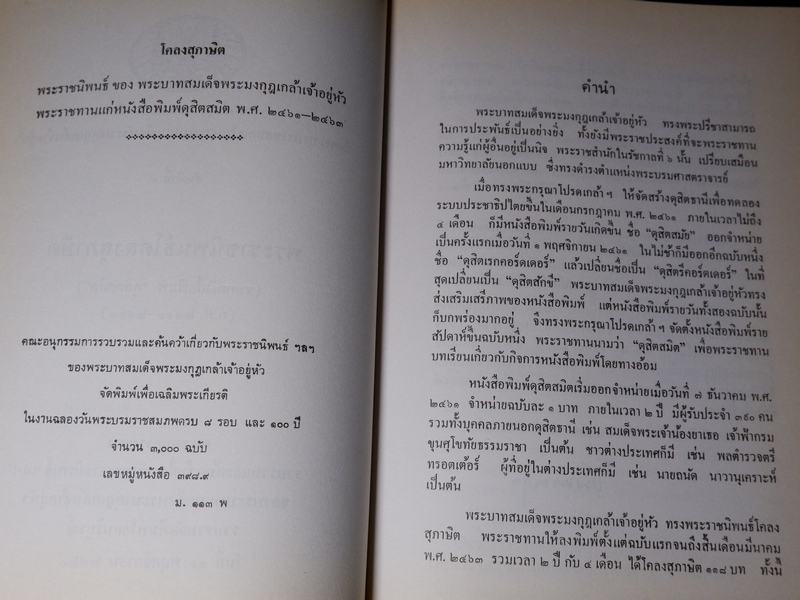 โคลงสุภาษิต
พระราชนิพนธ์ ของ พระบาทสมเด็จพระมงกุฎเกล้าเจ้าอยู่หัว
พระราชทานแก่หนังสือพิมพ์ดุสิตสมิต พ.ศ. ๒๔๖๑—๒๔๖๓
คณะอนุกรรมการรวบรวมและค้นคว้าเกี่ยวกับพระราชนิพนธ์ ฯลฯ
ของพระบาทสมเด็จพระมงกุฎเกล้าเจ้าอยู่หัว
จัดพิมพ์เพื่อเฉลิมพระเกียรติ
ในงานฉลองวันพระบรมราชสมภพครบ ๘ รอบ และ ๑๐๐ ปี
จำนวน ๓,๐๐๐ ฉบับ
เลขหมู่หนังสือ ๓๙๘.๙
ม. ๑๑๓ พ
คำนำ
พระบาทสมเด็จพระมงกุฎเกล้าเจ้าอยู่หัว ทรงพระปรีชาสามารถ
ในการประพันธ์เป็นอย่างยิ่ง ทั้งยังมีพระราชประสงค์ที่จะพระราชทาน
ความรู้แก่ผู้อื่นอยู่เป็นนิจ พระราชสำนักในรัชกาลที่ ๖ นั้น เปรียบเสมือน
มหาวิทยาลัยนอกแบบ ซึ่งทรงดำรงตำแหน่งพระบรมศาสตราจารย์
เมื่อทรงพระกรุณาโปรดเกล้า ฯ ให้จัดสร้างดุสิตธานีเพื่อทดลอง
ระบบประชาธิปไตยขึ้นในเดือนกรกฎาคม พ.ศ. ๒๔๖๑ ภายในเวลาไม่ถึง
๔ เดือน ก็มีหนังสือพิมพ์รายวันเกิดขึ้น ชื่อ “ดุสิตสมัย” ออกจำหน่าย
เป็นครั้งแรกเมื่อวันที่ ๑ พฤศจิกายน ๒๔๖๑ ในไม่ช้าก็มีออกอีกฉบับหนึ่ง
ชื่อ “ดุสิตเรกคอร์ดเดอร์” แล้วเปลี่ยนชื่อเป็น “ดุสิตรีคอร์ดเดอร์” ในที่
สุดเปลี่ยนเป็น “ดุสิตสักขี” พระบาทสมเด็จพระมงกุฎเกล้าเจ้าอยู่หัวทรง
ส่งเสริมเสรีภาพของหนังสือพิมพ์ แต่หนังสือพิมพ์รายวันทั้งสองฉบับนั้น
ก็บกพร่องมากอยู่ จึงทรงพระกรุณาโปรดเกล้า ฯ จัดตั้งหนังสือพิมพ์ราย
สัปดาห์ขึ้นฉบับหนึ่ง พระราชทานนามว่า “ดุสิตสมิต” เพื่อพระราชทาน
บทเรียนเกี่ยวกับกิจการหนังสือพิมพ์โดยทางอ้อม
หนังสือพิมพ์ดุสิตสมิตเริ่มออกจำหน่ายเมื่อวันที่ ๗ ธันวาคม พ.ศ.
๒๔๖๑ จำหน่ายฉบับละ ๑ บาท ภายในเวลา ๒ ปี มีผู้รับประจำ ๓๙๐ คน
รวมทั้งบุคคลภายนอกดุสิตธานี เช่น สมเด็จพระเจ้าน้องยาเธอ เจ้าฟ้ากรม
ขุนศุโขทัยธรรมราชา เป็นต้น ชาวต่างประเทศก็มี เช่น พลตำรวจตรี
ทรอตเต้อร์ ผู้ที่อยู่ในต่างประเทศก็มี เช่น นายถนัด นาวานุเคราะห์
เป็นต้น
พระบาทสมเด็จพระมงกุฎเกล้าเจ้าอยู่หัว ทรงพระราชนิพนธ์โคลง
สุภาษิต พระราชทานให้ลงพิมพ์ตั้งแต่ฉบับแรกจนถึงสิ้นเดือนมีนาคม
พ.ศ. ๒๔๖๓ รวมเวลา ๒ ปี กับ ๔ เดือน ได้โคลงสุภาษิต ๑๑๘ บท ทั้งนี้